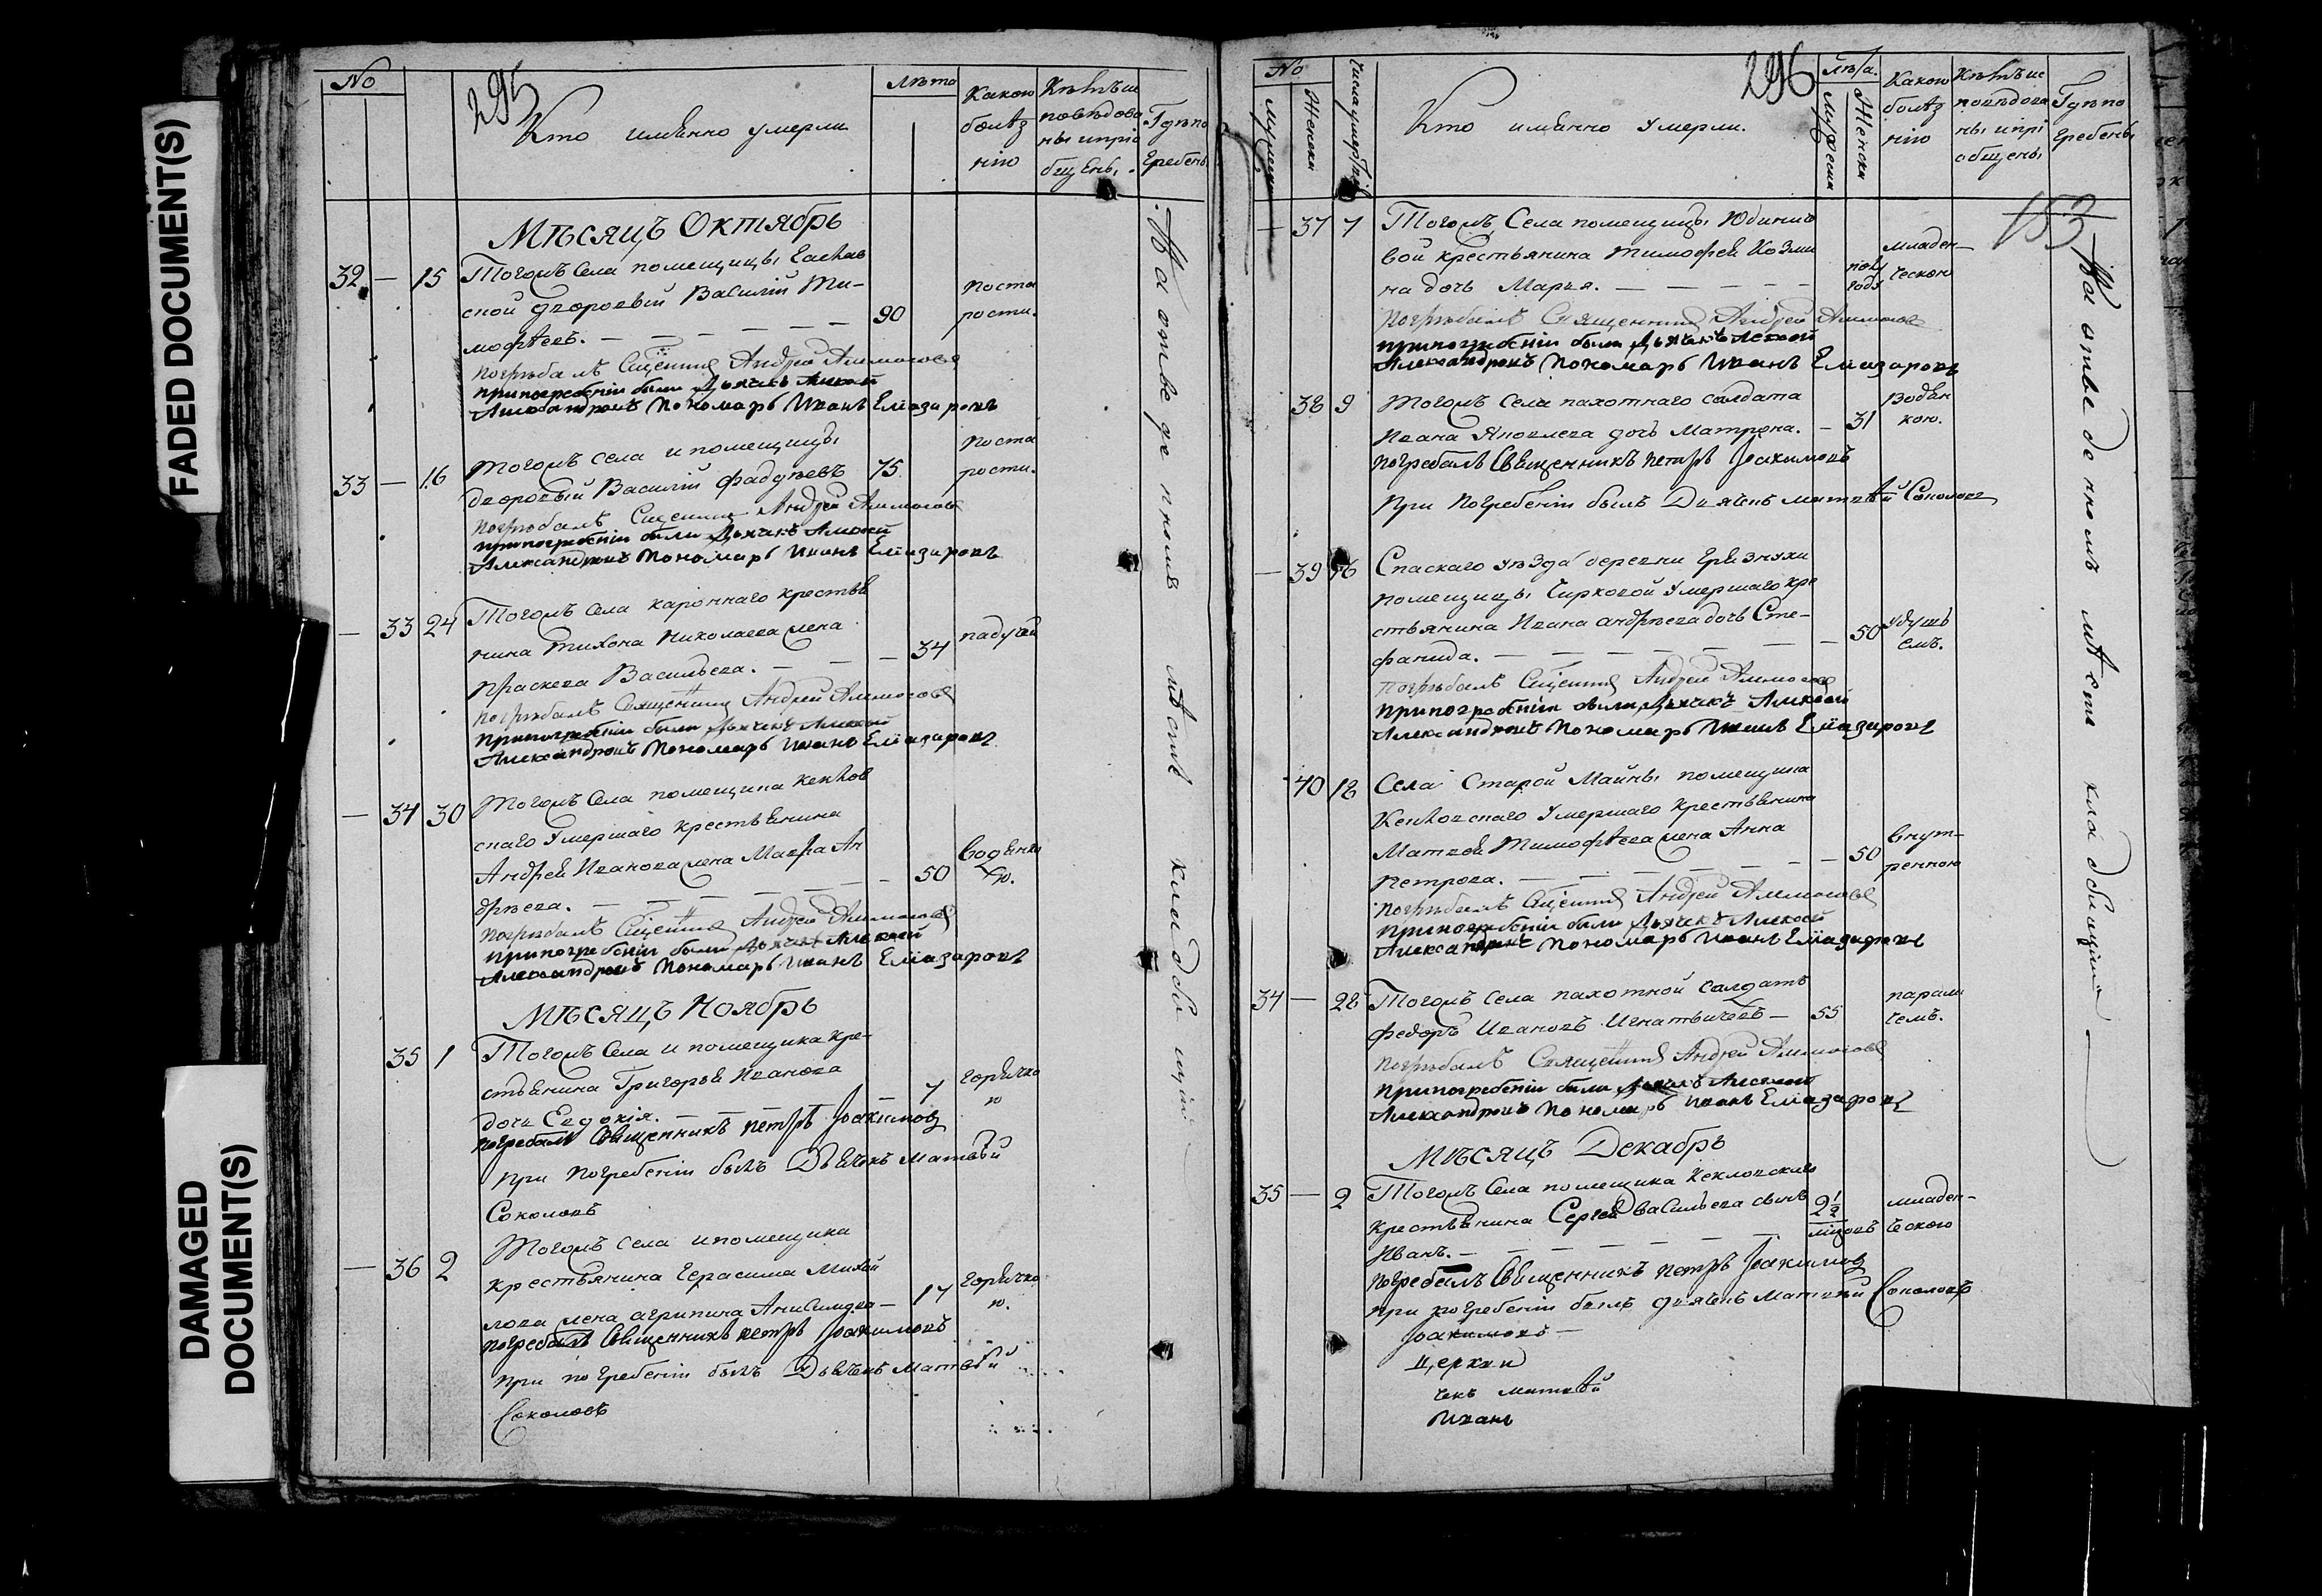 FADED DOCUMENT(S)
DAMAGED
DOCUMENT(S)
295
№
Кто имѣнно умерли
Лѣто
Какою
болѣз
нію
повѣдова
ны и прі
бщены
Гдѣ по
гребены
Мѣсяцъ Октябрь
32 — 15 Тогожъ села помещицы
ской дворовый Василій Ти-
мофѣевъ. — 90
по ста
рости.
погрѣбалъ Сщенникъ Андрей
при погребеніи были Дьячекъ Алексей
Александровъ Пономарь Иванъ Еліазаровъ
33 — 16 Тогожъ села и помещицы
дворовый Василій Фадѣевъ 75
по ста
рости.
погрѣбалъ Сщенникъ Андрей
при погребеніи были Дьячекъ Алексей
Александровъ Пономарь Иванъ Еліазаровъ
— 33 24 Тогожъ села крестья
нина Тихона Николаева жена
Праскева Васильева. — 34
падучей
погрѣбалъ Священникъ Андрей
при погребеніи были Дьячекъ Алексей
Александровъ Пономарь Иванъ Еліазаровъ
— 34 30 Тогожъ села помещика
скаго умершаго крестьянина
Андрея Иванова жена Мавра Ан
дрѣева. — 50
водянко
ю.
погрѣбалъ Сщенникъ Андрей
при погребеніи были Дьячекъ Алексей
Александровъ Пономарь Иванъ Еліазаровъ
Мѣсяцъ Ноябрь
35 1 Тогожъ села и помещика кре-
стьянина Григорья Иванова
дочь Евдокія. — 7
горячко
ю
погребалъ Священникъ Петръ Іоакимовъ
при погребеніи былъ Дьячекъ Матвѣй
Соколовъ
— 36 2 Тогожъ села и помещика
крестьянина Герасима Михай
лова жена Агрипина 17
горячко
ю.
погребалъ Священникъ Петръ Іоакимовъ
при погребеніи былъ Дьячекъ Матвѣй
Соколовъ
На отведенномъ мѣстѣ кладбищѣ
296
№
Мужеска
Женска
Числа умертвія
Кто имѣнно умерли.
лѣта.
Мужеска
Женска
Какою
болѣз
нію
повѣдова
ны и прі
общены
Гдѣ по
гребены
153
— 37 7 Тогожъ Села помещицы
вой крестьянина Тимофея Козми
на дочь Марья. —
пол
года
младен-
ческою
погрѣбалъ Священникъ Андрей
при погребеніи были Дьячекъ Алексей
Александровъ Пономарь Иванъ Еліазаровъ
38 9 Тогожъ Села пахотнаго солдата
Ивана Яковлева дочь Матрона. — 31
водян
кою.
погребалъ Священникъ Петръ Іоакимовъ
при погребеніи былъ Дьячекъ Матвѣй Соколовъ
— 39 16 Спаскаго уѣзда деревни
помещицы Чирковой умершаго кре
стьянина Ивана Андрѣева дочь Сте-
фанида. — 50
удушь
емъ.
погрѣбалъ Сщенникъ Андрей
при погребеніи были Дьячекъ Алексей
Александровъ Пономарь Иванъ Еліазаровъ
40 18 Села Старой Майны помещика
умершаго крестьянина
Матвея Тимофѣева жена Анна
Петрова. — 50
внут-
реннею
погрѣбалъ Сщенникъ Андрей
при погребеніи были Дьячекъ Алексей
Александровъ Пономарь Иванъ Еліазаровъ
34 — 28 Тогожъ Села пахотной солдатъ
Федоръ Ивановъ Игнатьичевъ — 55
парали
чемъ.
погрѣбалъ Священникъ Андрей
при погребеніи были Дьячекъ Алексей
Александровъ Пономарь Иванъ Еліазаровъ
Мѣсяцъ Декабрь
35 — 2 Тогожъ Села помещика
крестьянина Сергея Васильева сынъ
Иванъ. — 2½
младен-
ческою
погребалъ Священникъ Петръ Іоакимовъ
при погребеніи былъ дьячекъ Матвей Соколовъ
Іоакимовъ —
церкви
чекъ Матвѣй
Иванъ
На отведенномъ мѣстѣ кладбищѣ